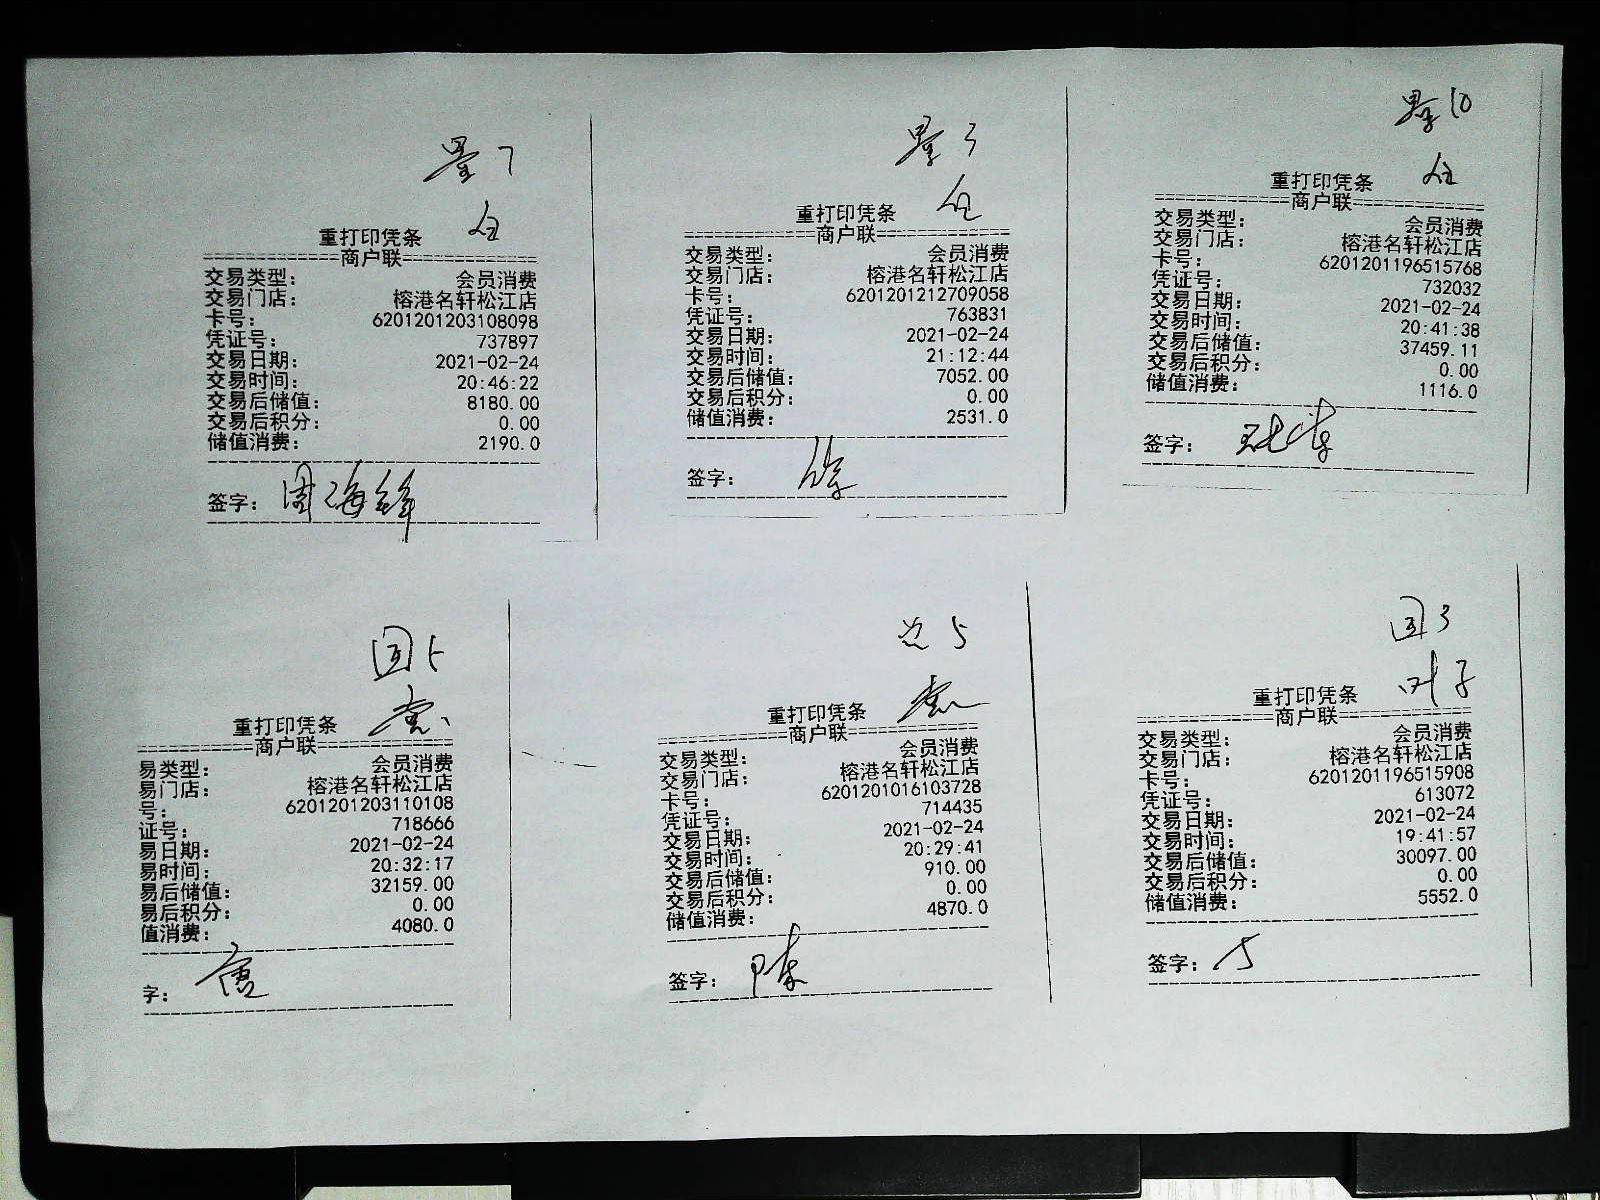 7
重打印凭条
商户联
交易类型: 会员消费
交易门店: 榕港名轩松江店
卡号: 6201201203108098
凭证号: 737897
交易日期: 2021-02-24
交易时间: 20:46:22
交易后储值: 8180.00
交易后积分: 0.00
储值消费: 2190.0
签字: 周海峰
3
重打印凭条
商户联
交易类型: 会员消费
交易门店: 榕港名轩松江店
卡号: 6201201212709058
凭证号: 763831
交易日期: 2021-02-24
交易时间: 21:12:44
交易后储值: 7052.00
交易后积分: 0.00
储值消费: 2531.0
签字:
10
重打印凭条
商户联
交易类型: 会员消费
交易门店: 榕港名轩松江店
卡号: 6201201196515768
凭证号: 732032
交易日期: 2021-02-24
交易时间: 20:41:38
交易后储值: 37459.11
交易后积分: 0.00
储值消费: 1116.0
签字:
5
重打印凭条
商户联
易类型: 会员消费
易门店: 榕港名轩松江店
号: 6201201203110108
证号: 718666
易日期: 2021-02-24
易时间: 20:32:17
易后储值: 32159.00
易后积分: 0.00
值消费: 4080.0
字: 唐
5
重打印凭条
商户联
交易类型: 会员消费
交易门店: 榕港名轩松江店
卡号: 6201201016103728
凭证号: 714435
交易日期: 2021-02-24
交易时间: 20:29:41
交易后储值: 910.00
交易后积分: 0.00
储值消费: 4870.0
签字: 陈
3
叶子
重打印凭条
商户联
交易类型: 会员消费
交易门店: 榕港名轩松江店
卡号: 6201201196515908
凭证号: 613072
交易日期: 2021-02-24
交易时间: 19:41:57
交易后储值: 30097.00
交易后积分: 0.00
储值消费: 5552.0
签字: